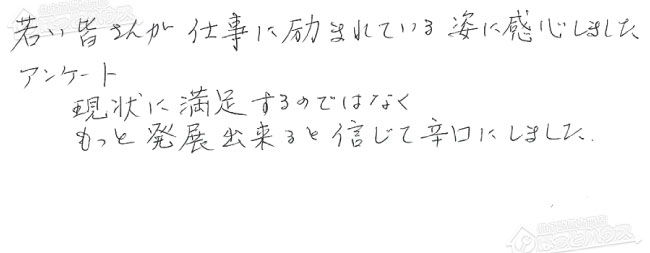 若い皆さんが仕事に励まれている姿に感心しました
アンケート
現状に満足するのではなく
もっと発展出来ると信じて辛口にしました.